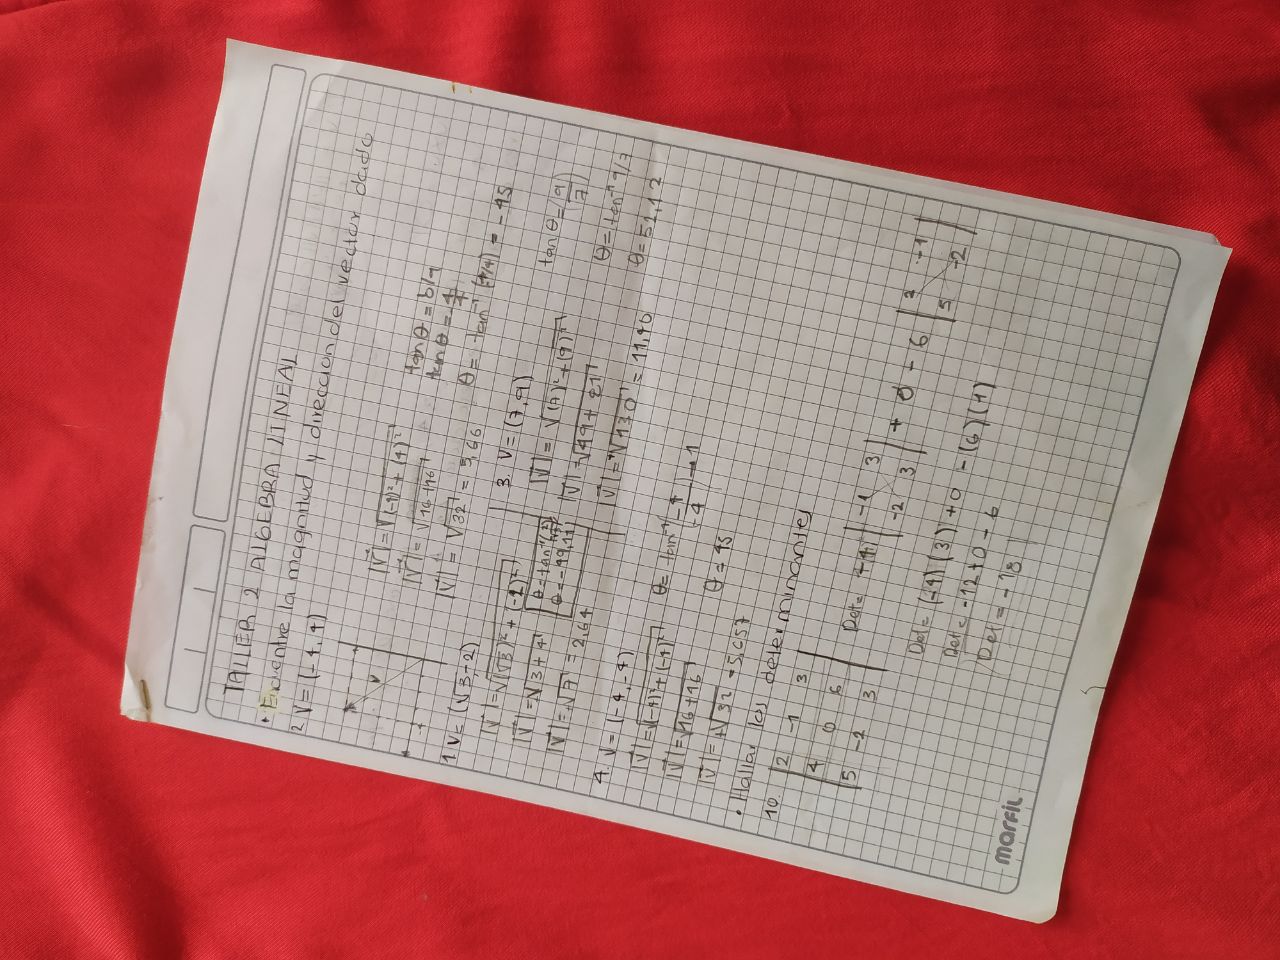 TALLER 2 ALGEBRA LINEAL
• Encuentre la magnitud y direccion del vector dado
2 V = (-4 4)
V
|V| = √(-4)² + (4)²
|V| = √16+16
|V| = √32 = 5,66
tan θ = b/a
tan θ = 4/4
θ = tan⁻¹ (4/4) = -45
1 V = (√3 -2)
|V| = √(√3)² + (-2)²
|V| = √3 + 4
|V| = √7 = 2,64
θ = -49,11
3 V = (7, 9)
|V| = √(7)² + (9)²
|V| = √49 + 81
|V| = √130 = 11,40
tan θ = (9/7)
θ = tan⁻¹ 9/7
θ = 52,12
4 V = (-4, -4)
|V| = √(-4)² + (-4)²
|V| = √16 + 16
|V| = √32 = 5,657
θ = tan⁻¹ -4/-4 = 1
θ = 45
• Hallar los determinantes
10.
2 -1 3
4 0 6
5 -2 3
Det = -4 | -1 3 | + 0 - 6 | 2 -1 |
| -2 3 | | 5 -2 |
Det = (-4) (3) + 0 - (6) (1)
Det = -12 + 0 - 6
Det = -18
marfil